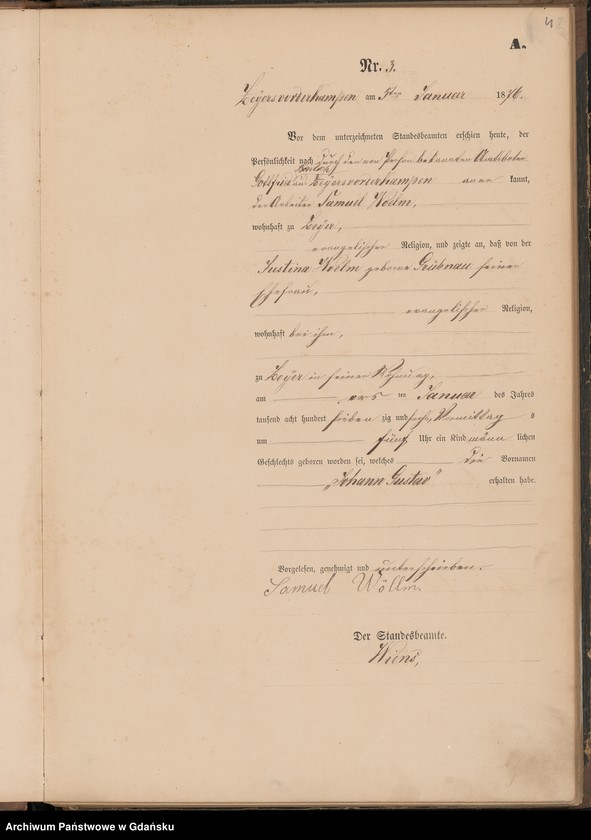 4
A.
Nr. 3.
Zeyersvorderkampen am 5ten Januar 1876.
Vor dem unterzeichneten Standesbeamten erschien heute, der
Persönlichkeit nach durch den von Person bekannten Amtsboten
Gottfried zu Zeyersvorderkampen aner kannt,
der Arbeiter Samuel Woelm,
wohnhaft zu Zeyer,
evangelischer Religion, und zeigte an, daß von der
Justina Woelm geborne Grübnau seiner
Ehefrau,
evangelischer Religion,
wohnhaft bei ihm,
zu Zeyer in seiner Wohnung,
am ten Januar des Jahres
tausend acht hundert sieben zig und sechs, Vormittag s
um fünf Uhr ein Kind männ lichen
Geschlechts geboren worden sei, welches die Vornamen
„Johann Gustav" erhalten habe.
Vorgelesen, genehmigt und unterschrieben.
Samuel Wöllm.
Der Standesbeamte.
Wiens,
Archiwum Państwowe w Gdańsku